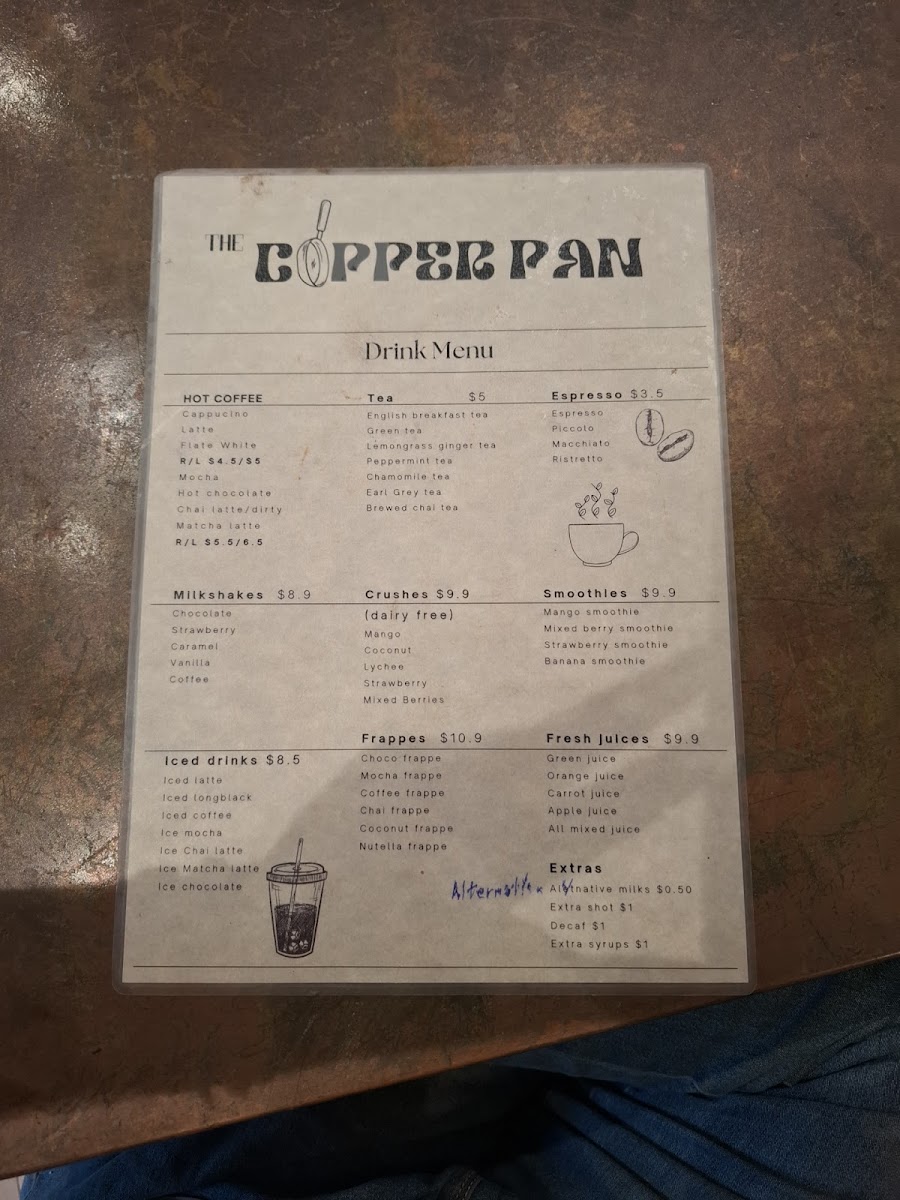 THE COPPER PAN
Drink Menu
HOT COFFEE
Cappucino
Latte
Flate White
R/L $4.5/$5
Mocha
Hot chocolate
Chai latte/dirty
Matcha latte
R/L $5.5/6.5
Tea $5
English breakfast tea
Green tea
Lemongrass ginger tea
Peppermint tea
Chamomile tea
Earl Grey tea
Brewed chai tea
Espresso $3.5
Espresso
Piccolo
Macchiato
Ristretto
Milkshakes $8.9
Chocolate
Strawberry
Caramel
Vanilla
Coffee
Crushes $9.9
(dairy free)
Mango
Coconut
Lychee
Strawberry
Mixed Berries
Smoothies $9.9
Mango smoothie
Mixed berry smoothie
Strawberry smoothie
Banana smoothie
Iced drinks $8.5
Iced latte
Iced longblack
Iced coffee
Ice mocha
Ice Chai latte
Ice Matcha latte
Ice chocolate
Frappes $10.9
Choco frappe
Mocha frappe
Coffee frappe
Chai frappe
Coconut frappe
Nutella frappe
Fresh juices $9.9
Green juice
Orange juice
Carrot juice
Apple juice
All mixed juice
Extras
milks $0.50
Extra shot $1
Decaf $1
Extra syrups $1